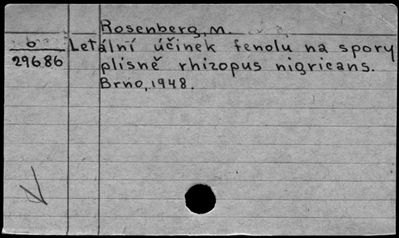 Rosenberg, M.
b Letální účinek fenolu na spory
29686 plísně rhizopus nigricans.
Brno, 1948.